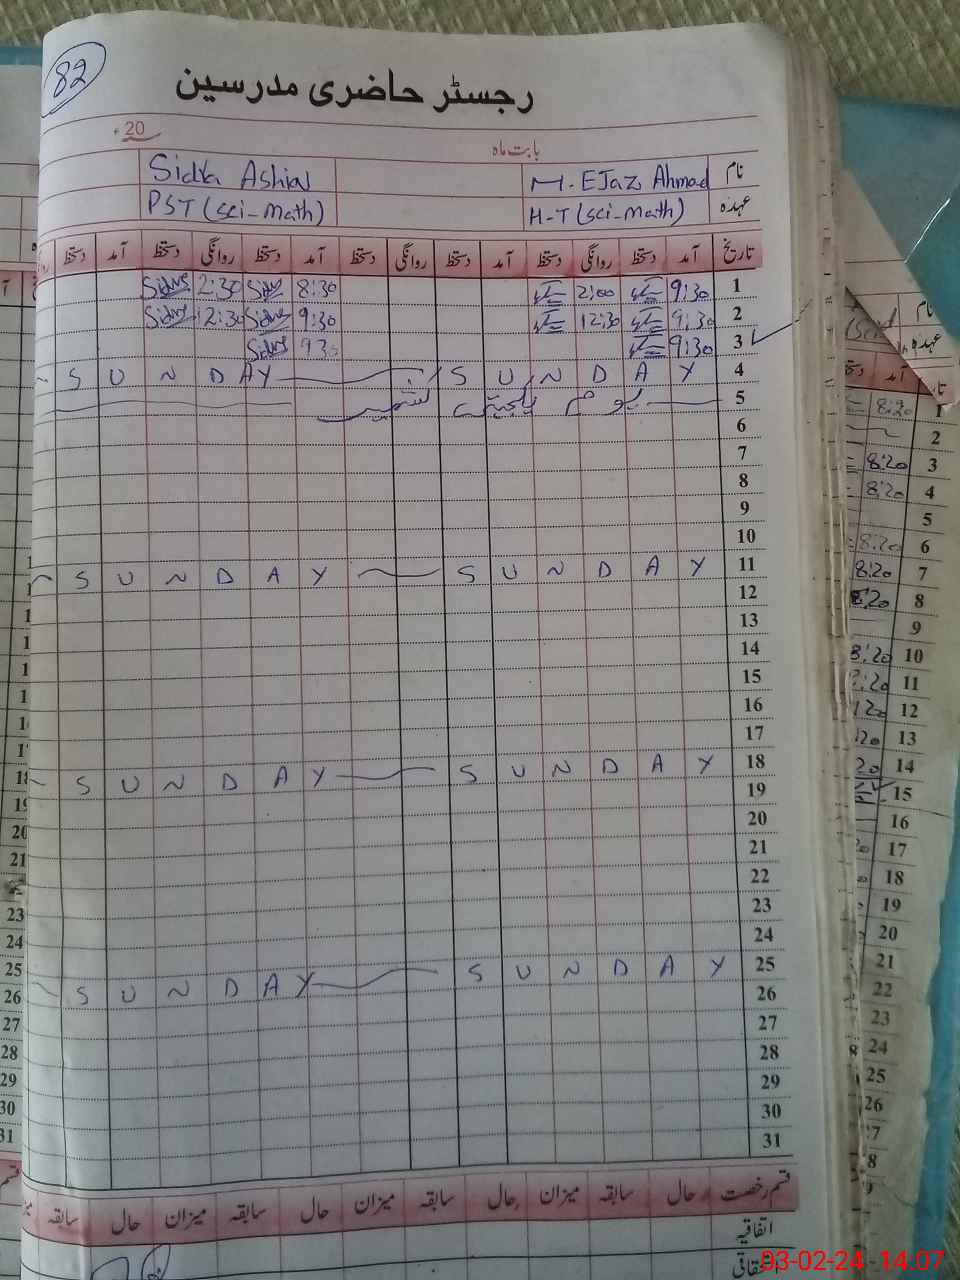 82
رجسٹر حاضری مدرسین
بابت ماہ 20ء
نام M. EJaz Ahmad Sidra
عہدہ H-T (sci-math) PST (sci-math)
تاریخ آمد دستخط روانگی دستخط آمد دستخط روانگی دستخط آمد دستخط روانگی دستخط آمد دستخط
1 9:30 2:00 8:30 2:30
2 9:30 12:30 9:30 12:30
3 9:30 9 30
4 SUNDAY SUNDAY
5 یوم یکجہتی کشمیر
6
7
8
9
10
11 SUNDAY SUNDAY
12
13
14
15
16
17
18 SUNDAY SUNDAY
19
20
21
22
23
24
25 SUNDAY SUNDAY
26
27
28
29
30
31
قسم رخصت حال سابقہ میزان حال سابقہ میزان حال سابقہ میزان حال سابقہ
اتفاقیہ
03-02-24 14:07
نام
عہدہ
آمد
1 8:20
2
3 8:20
4 8:20
5
6 8:20
7 8:20
8 8:20
9
10 8:20
11
12
13
14
15
16
17
18
19
20
21
22
23
24
25
26